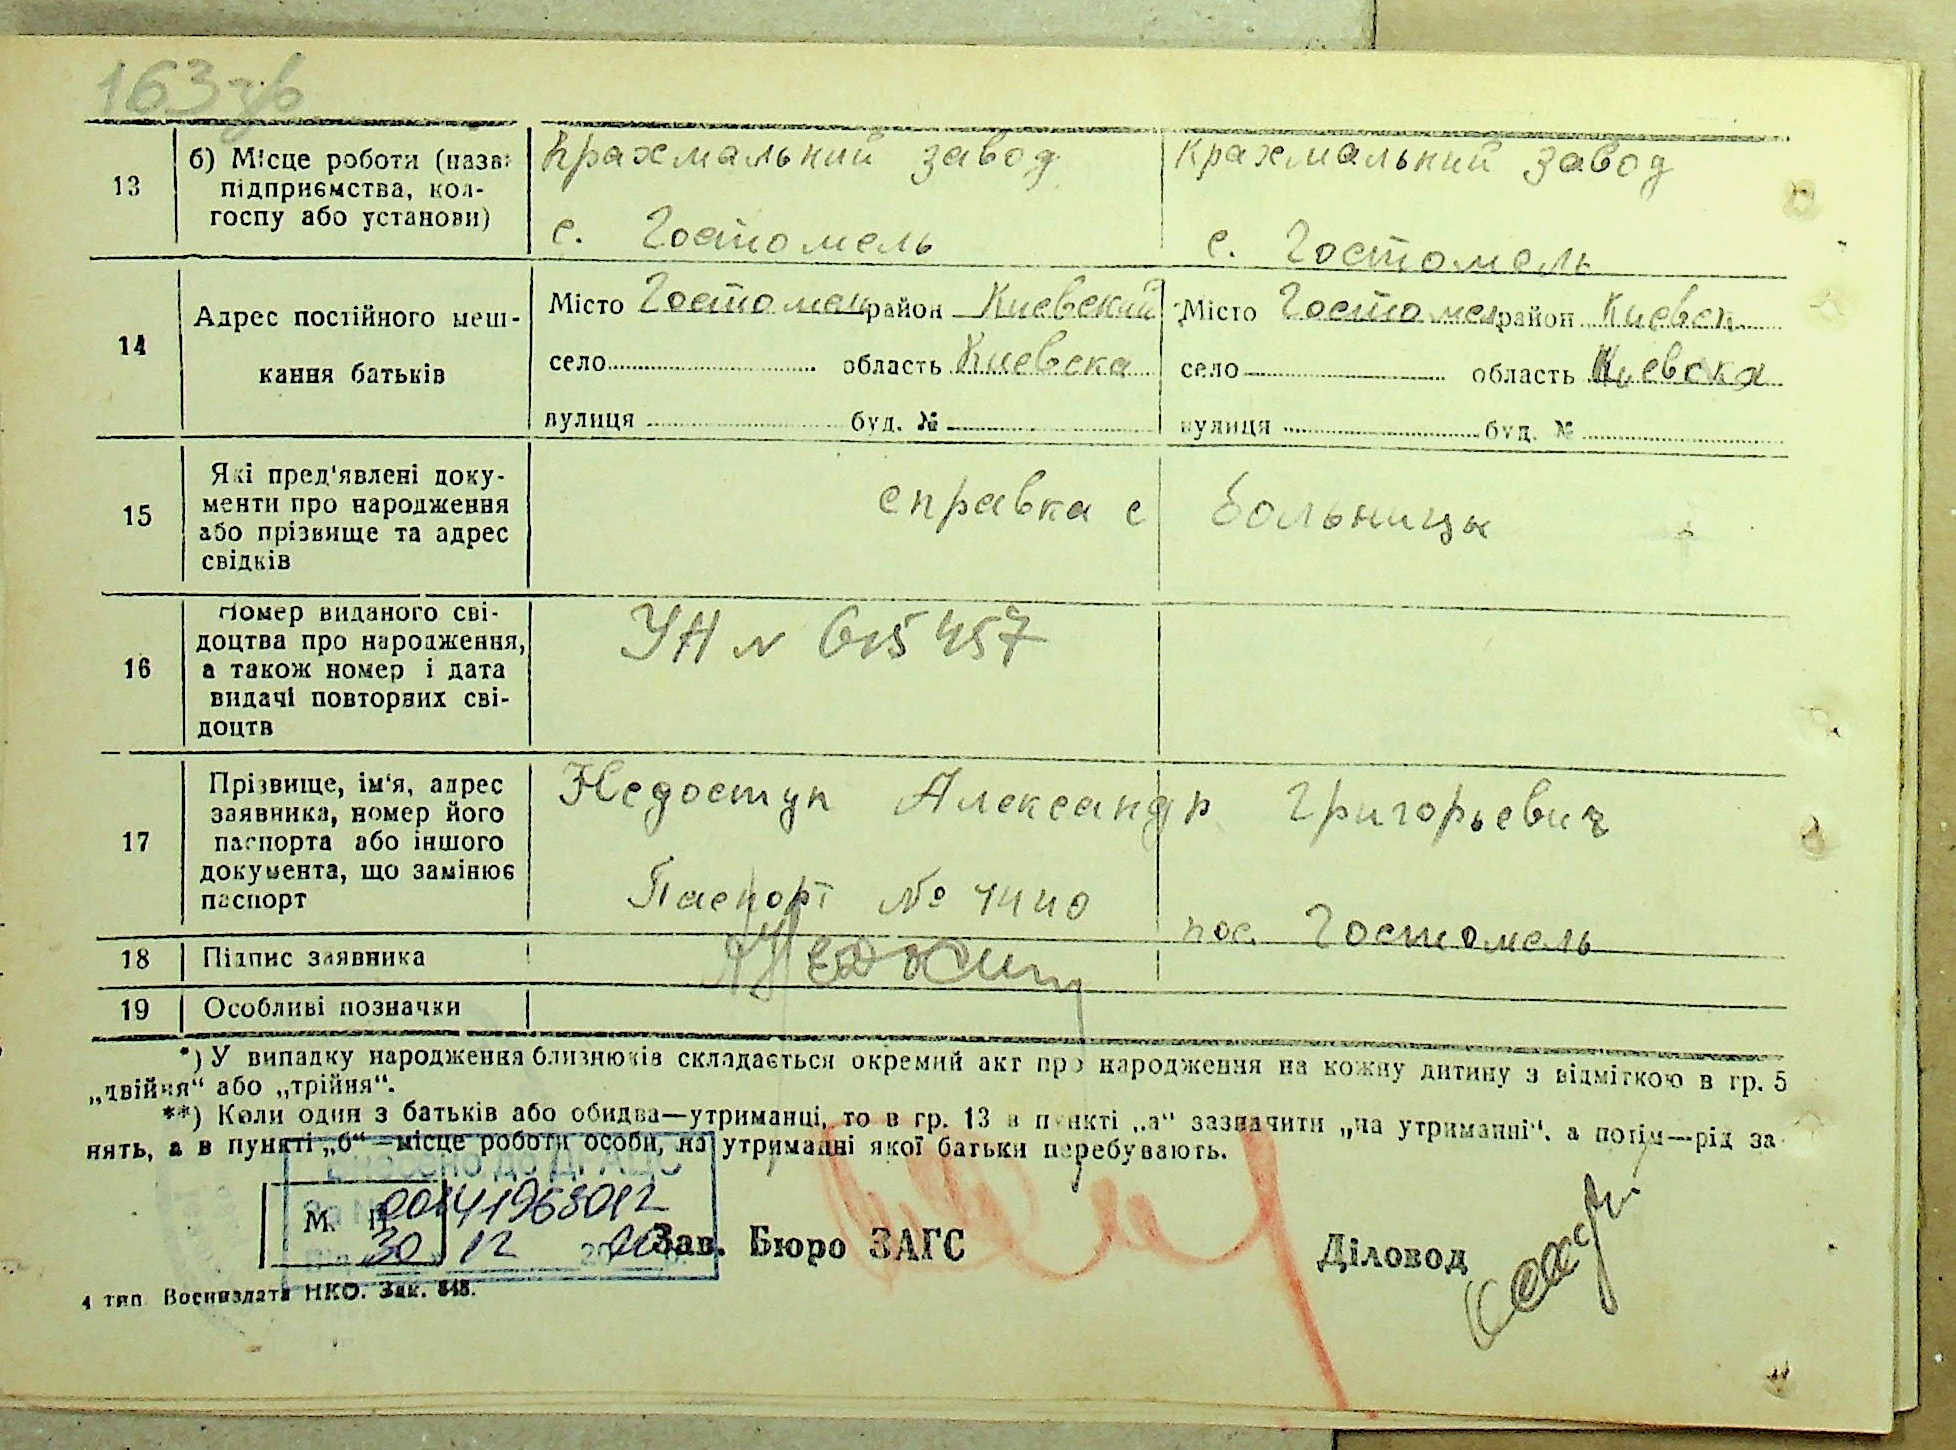 163 зв
13
б) Місце роботи (назва
підприємства, кол-
госпу або установи)
Крахмальний завод
с. Гостомель
Крахмальний завод
с. Гостомель
14
Адрес постійного меш-
кання батьків
Місто Гостомел район Киевский
село область Киевска
вулиця буд. №
Місто Гостомел район Киевск
село область Киевска
вулиця буд. №
15
Які пред'явлені доку-
менти про народження
або прізвище та адрес
свідків
справка с больницы
16
Номер виданого сві-
доцтва про народження,
а також номер і дата
видачі повторних сві-
доцтв
УН № 615457
17
Прізвище, ім'я, адрес
заявника, номер його
паспорта або іншого
документа, що замінює
паспорт
Недоступ Александр Григорьевич
Паспорт № 1440 пос. Гостомель
18
Підпис заявника
19
Особливі позначки
*) У випадку народження близнюків складається окремий акт про народження на кожну дитину з відміткою в гр. 5
„двійня“ або „трійня“.
**) Коли один з батьків або обидва—утриманці, то в гр. 13 в пункті „а“ зазначити „на утриманні“, а потім—рід за
нять, а в пункті „б“—місце роботи особи, на утриманні якої батьки перебувають.
М. П.
00141968012
30 12 20
Зав. Бюро ЗАГС
Діловод
4 тип Воениздата НКО. Зак. 848.